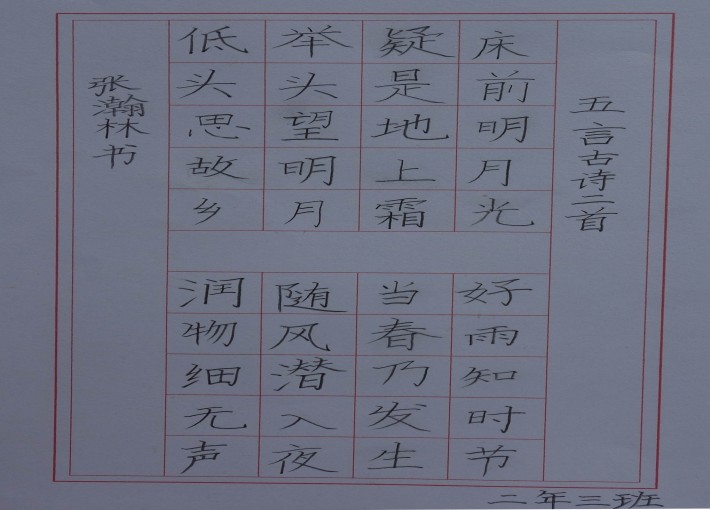 五言古诗二首
床前明月光
疑是地上霜
举头望明月
低头思故乡
好雨知时节
当春乃发生
随风潜入夜
润物细无声
张瀚林书
二年三班